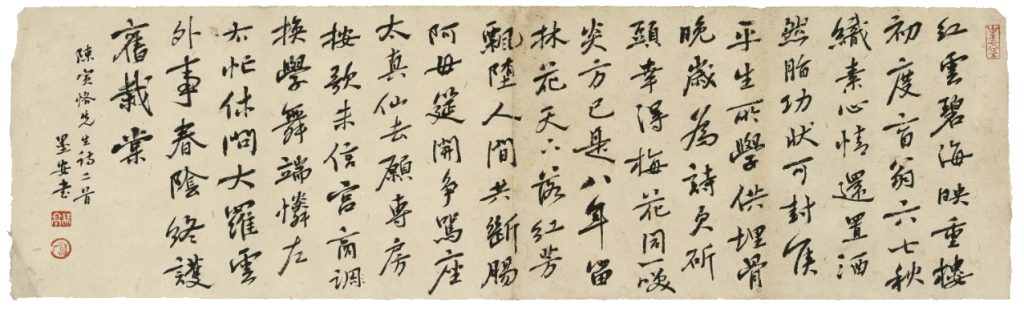 紅雲碧海映重樓
初度盲翁六七秋
織素心情還置酒
然脂功狀可封侯
平生所學供埋骨
晚歲為詩欠斫
頭幸得梅花同一咲
炎方已是八年留
林花天上落紅芳
飄墮人間共斷腸
阿母筵開爭罵座
太真仙去願專房
按歌未信宮商調
換學舞端憐左
右忙休問大羅雲
外事春陰終護
舊栽棠
陳寅恪先生詩二首
墨安書